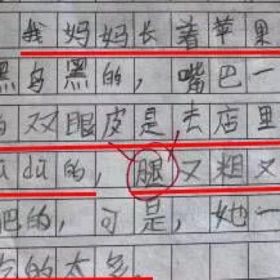 我妈妈长着苹果
黑乌黑的，嘴巴一
双眼皮是去店里
dū的，腿又粗又
吧的，可是，她一
的太